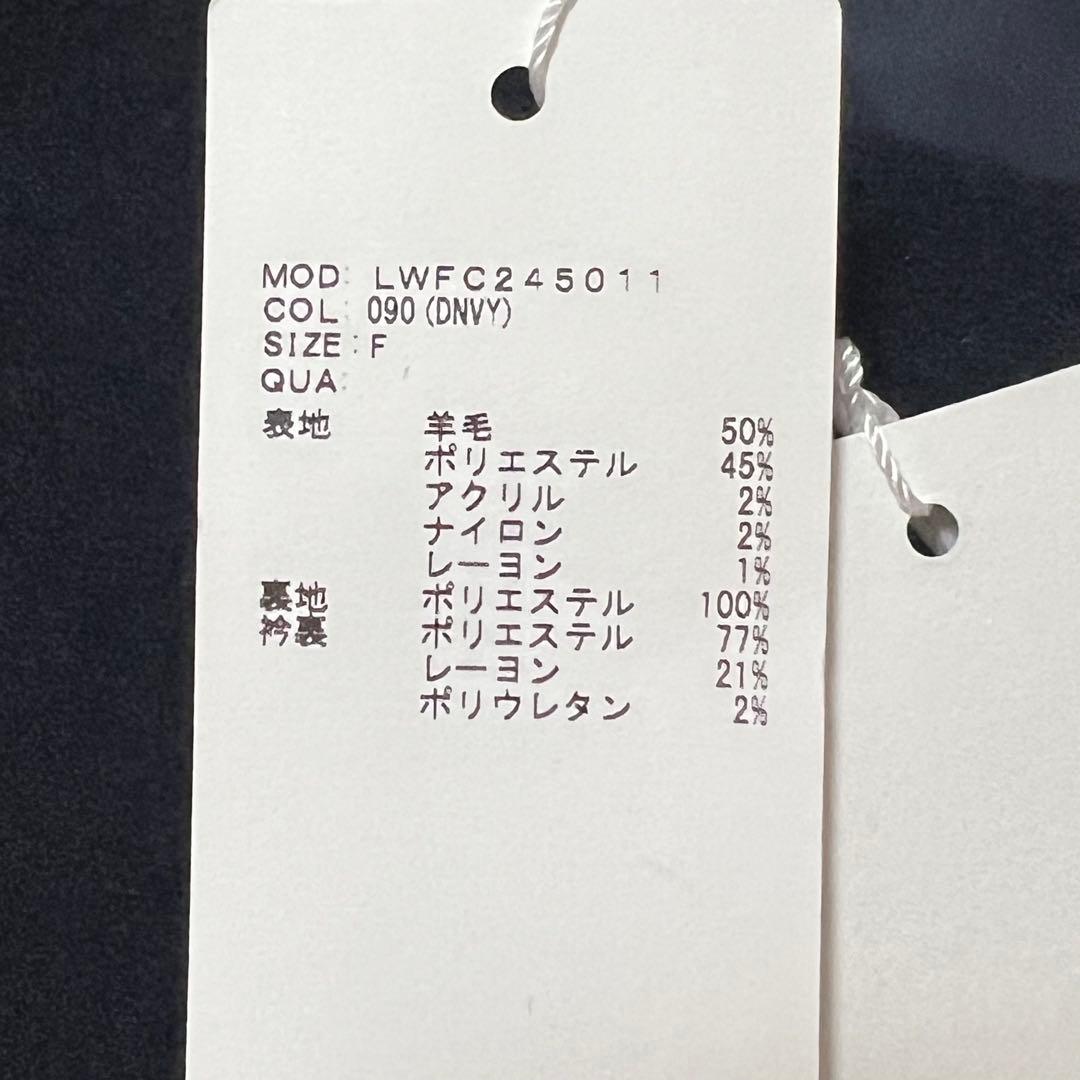 MOD: LWFC245011
COL: 090(DNVY)
SIZE:F
QUA:
表地 羊毛 50%
ポリエステル 45%
アクリル 2%
ナイロン 2%
レーヨン 1%
裏地 ポリエステル 100%
衿裏 ポリエステル 77%
レーヨン 21%
ポリウレタン 2%